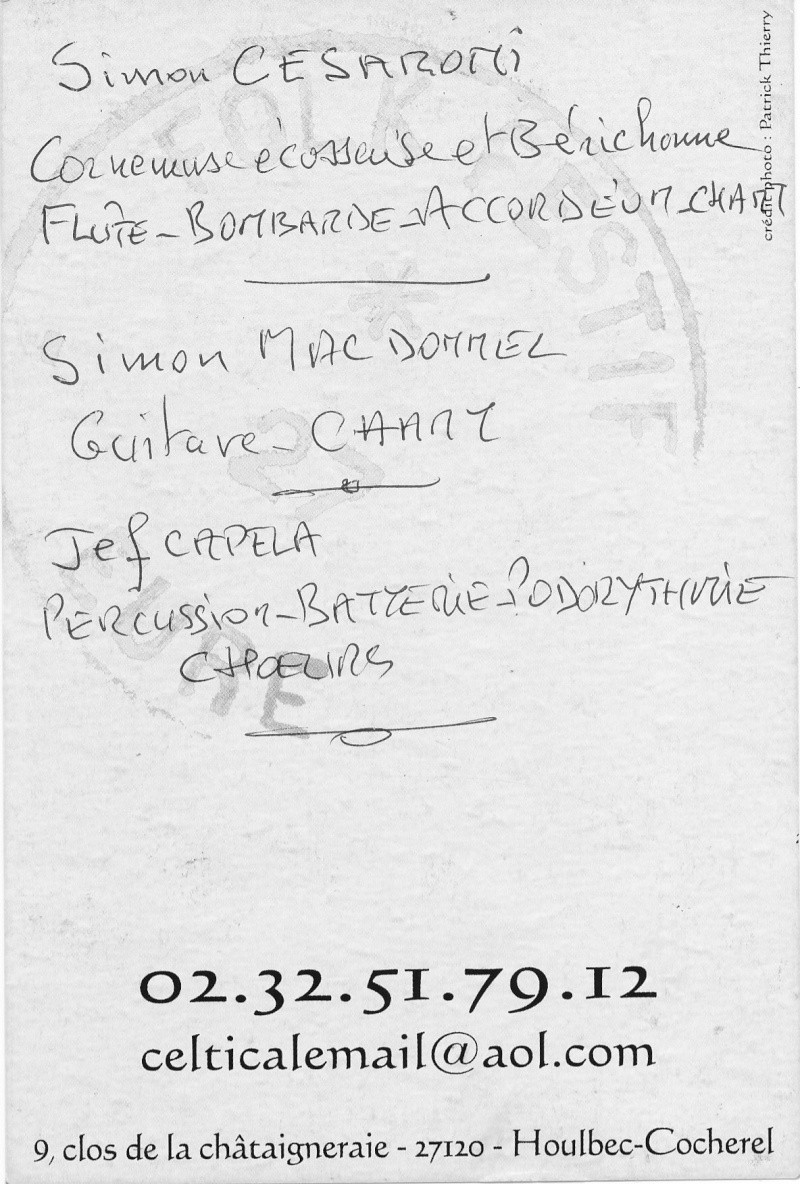 Simon CESARONI
Cornemuse écossaise et Bérichonne
FLUTE - BOMBARDE - ACCORDÉON - CHANT
crédit photo : Patrick Thierry
Simon MAC DONNEL
Guitare - CHANT
Jef CAPELA
PERCUSSION - BATTERIE - PODORYTHMIE
CHOEURS
FOLK FESTIF
EURE
02.32.51.79.12
celticalemail@aol.com
9, clos de la châtaigneraie - 27120 - Houlbec-Cocherel